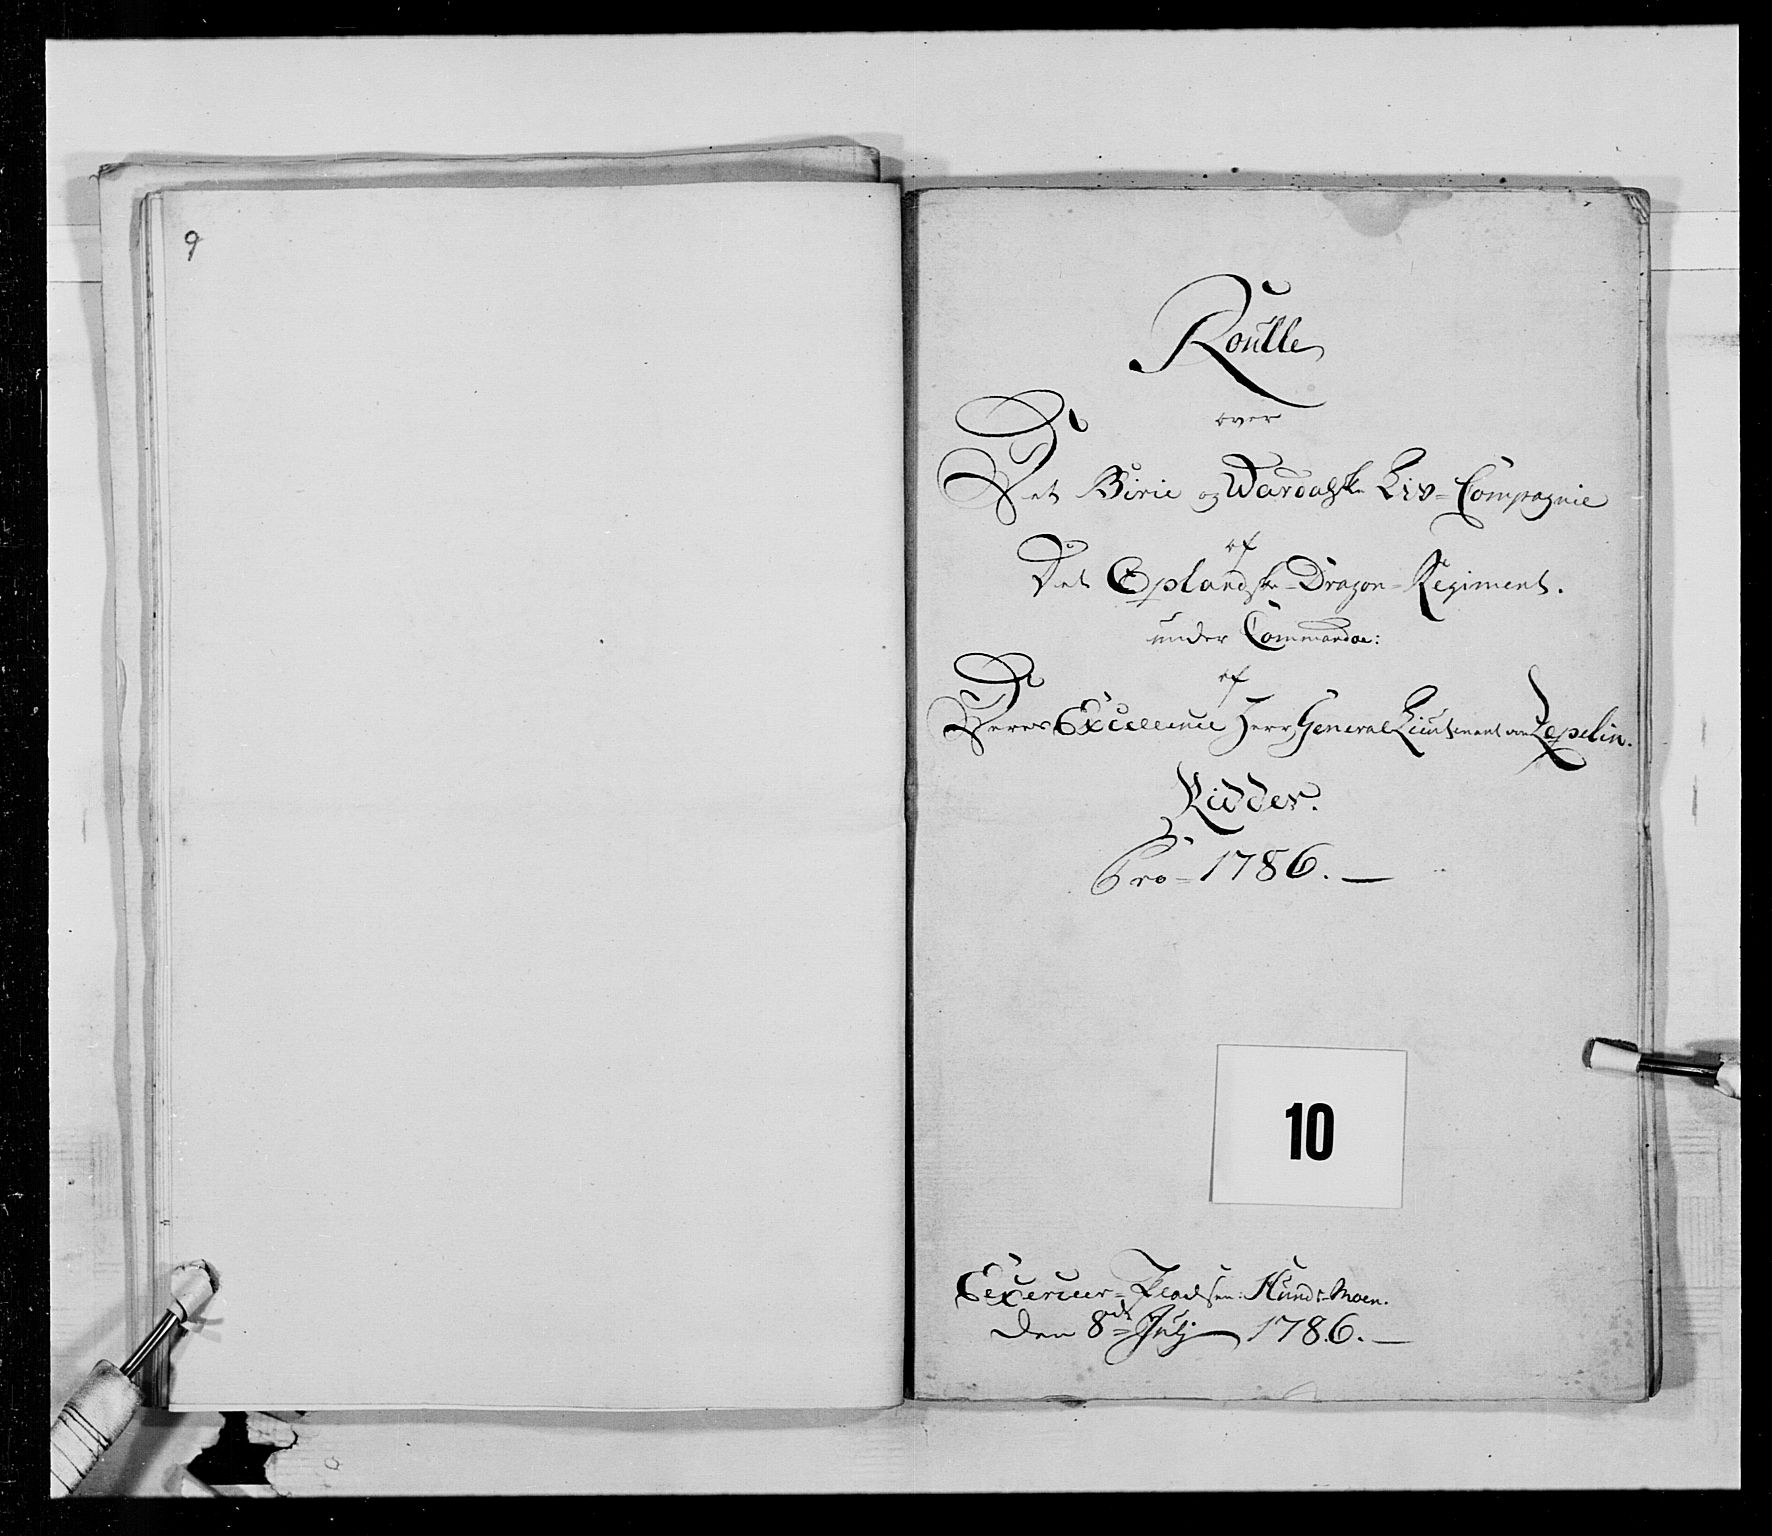 9
Roulle
over
Det Birie og Wardalske Liv-Compagnie
af
Det Oplandske-Dragon-Regiment.
under Commandoe:
af
Deres Excellence Herr General Lieutenant von Zepelin.
Ridder.
Pro-1786.—
10
Exercier-Pladsen: Hunds-Moen.
den 8de July 1786.—